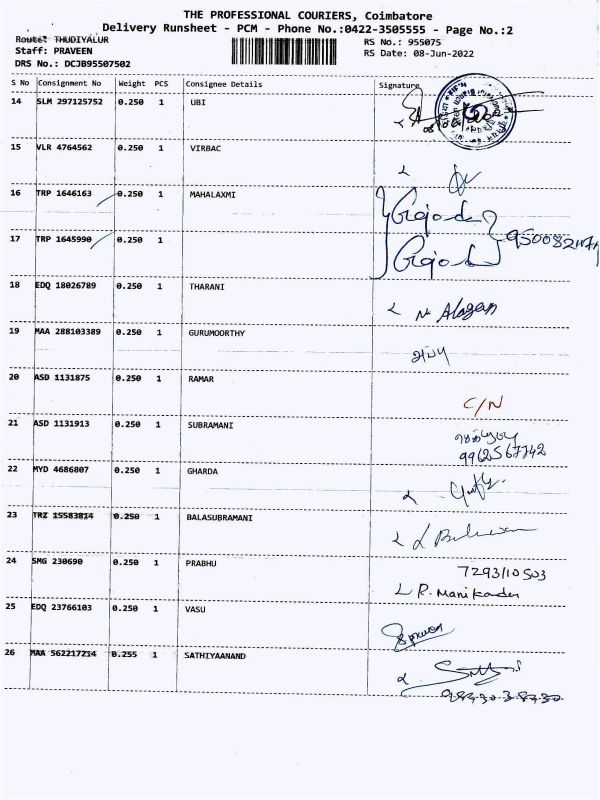 THE PROFESSIONAL COURIERS, Coimbatore
Delivery Runsheet - PCM - Phone No.:0422-3505555 - Page No.:2
Route: THUDIYALUR
RS No.: 955075
Staff: PRAVEEN
RS Date: 08-Jun-2022
DRS No.: DCJB95507502
S No Consignment No Weight PCS Consignee Details Signature
14 SLM 297125752 0.250 1 UBI
15 VLR 4764562 0.250 1 VIRBAC
16 TRP 1646163 0.250 1 MAHALAXMI
17 TRP 1645990 0.250 1
18 EDQ 18026789 0.250 1 THARANI
N. Alagan
19 MAA 288103389 0.250 1 GURUMOORTHY
20 ASD 1131875 0.250 1 RAMAR
C/N
21 ASD 1131913 0.250 1 SUBRAMANI
9962567742
22 MYD 4686807 0.250 1 GHARDA
23 TRZ 15583814 0.250 1 BALASUBRAMANI
24 SMG 230690 0.250 1 PRABHU
7293110503
P. Manikandan
25 EDQ 23766103 0.250 1 VASU
26 MAA 562217214 0.255 1 SATHIYAANAND